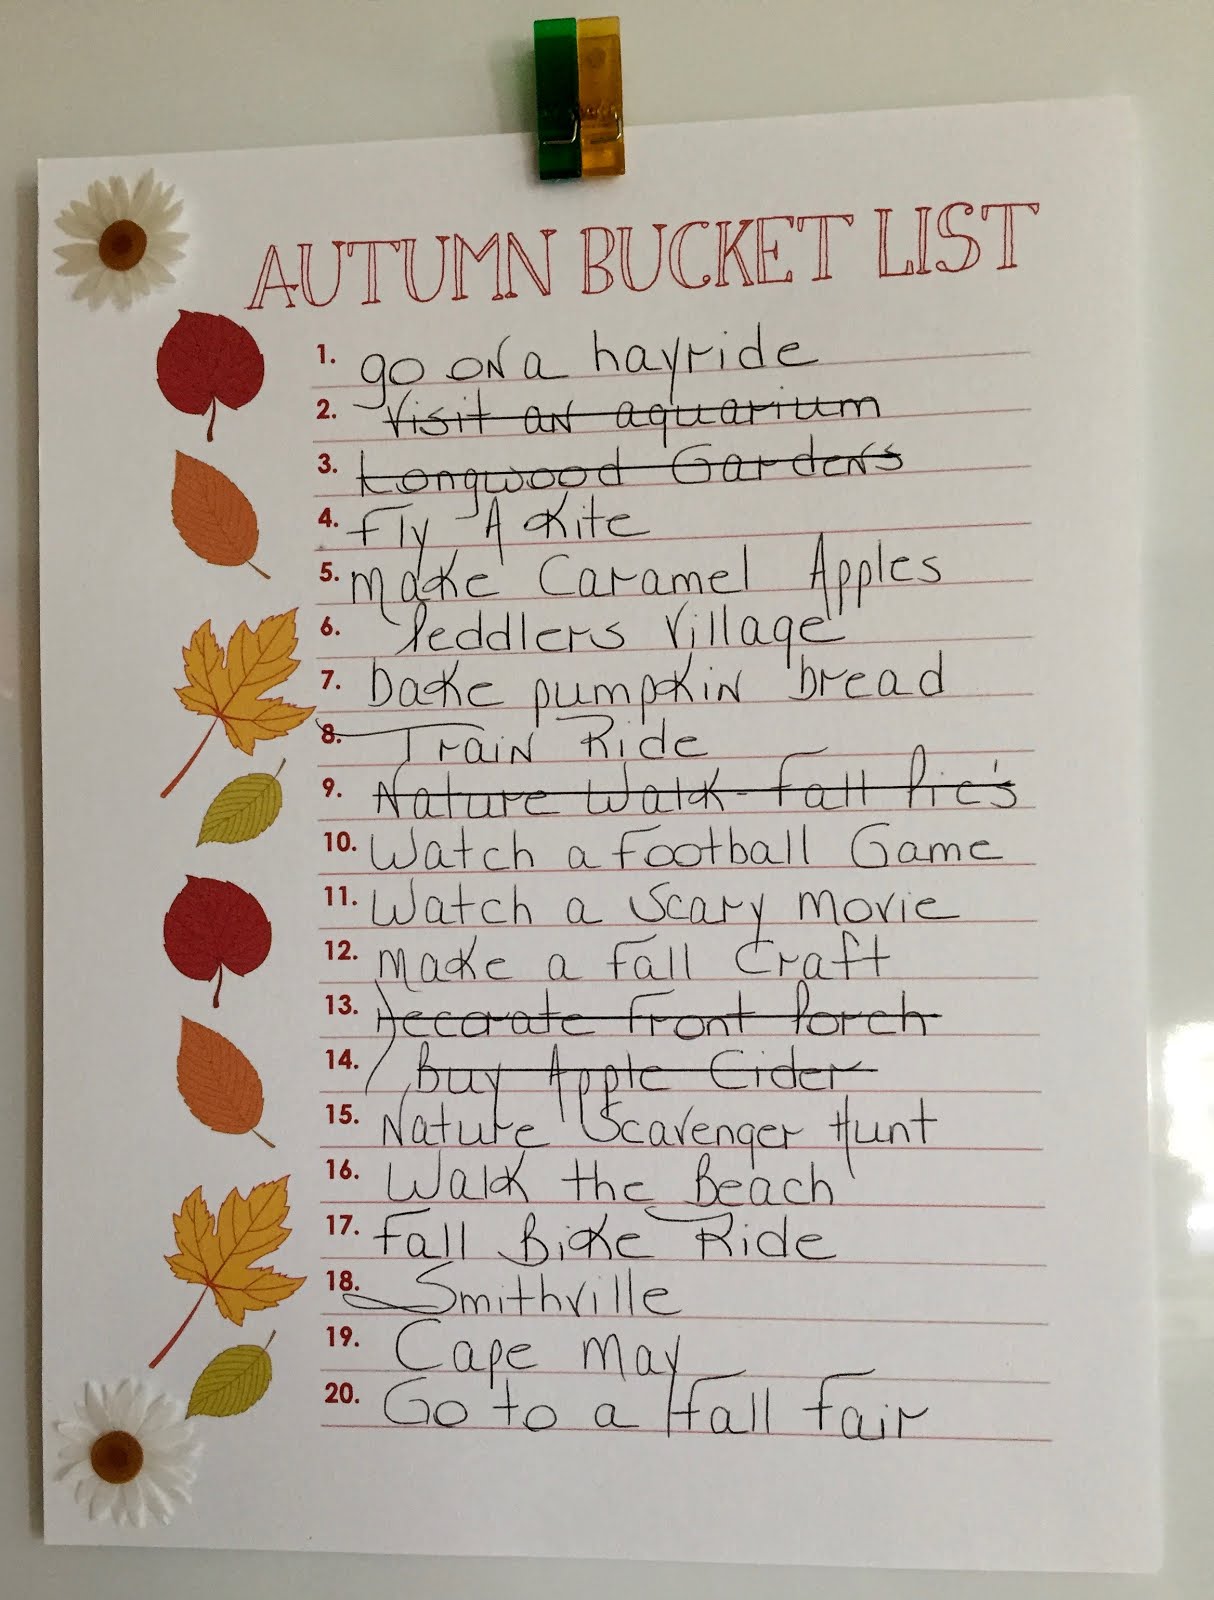 AUTUMN BUCKET LIST
1. go on a hayride
2. Visit an aquarium
3. Longwood Gardens
4. Fly A Kite
5. Make Caramel Apples
6. Peddlers Village
7. bake pumpkin bread
8. Train Ride
9. Nature Walk - Fall Pic's
10. Watch a Football Game
11. Watch a Scary movie
12. make a Fall Craft
13. Decorate Front Porch
14. Buy Apple Cider
15. Nature Scavenger Hunt
16. Walk the Beach
17. Fall Bike Ride
18. Smithville
19. Cape May
20. Go to a Fall Fair